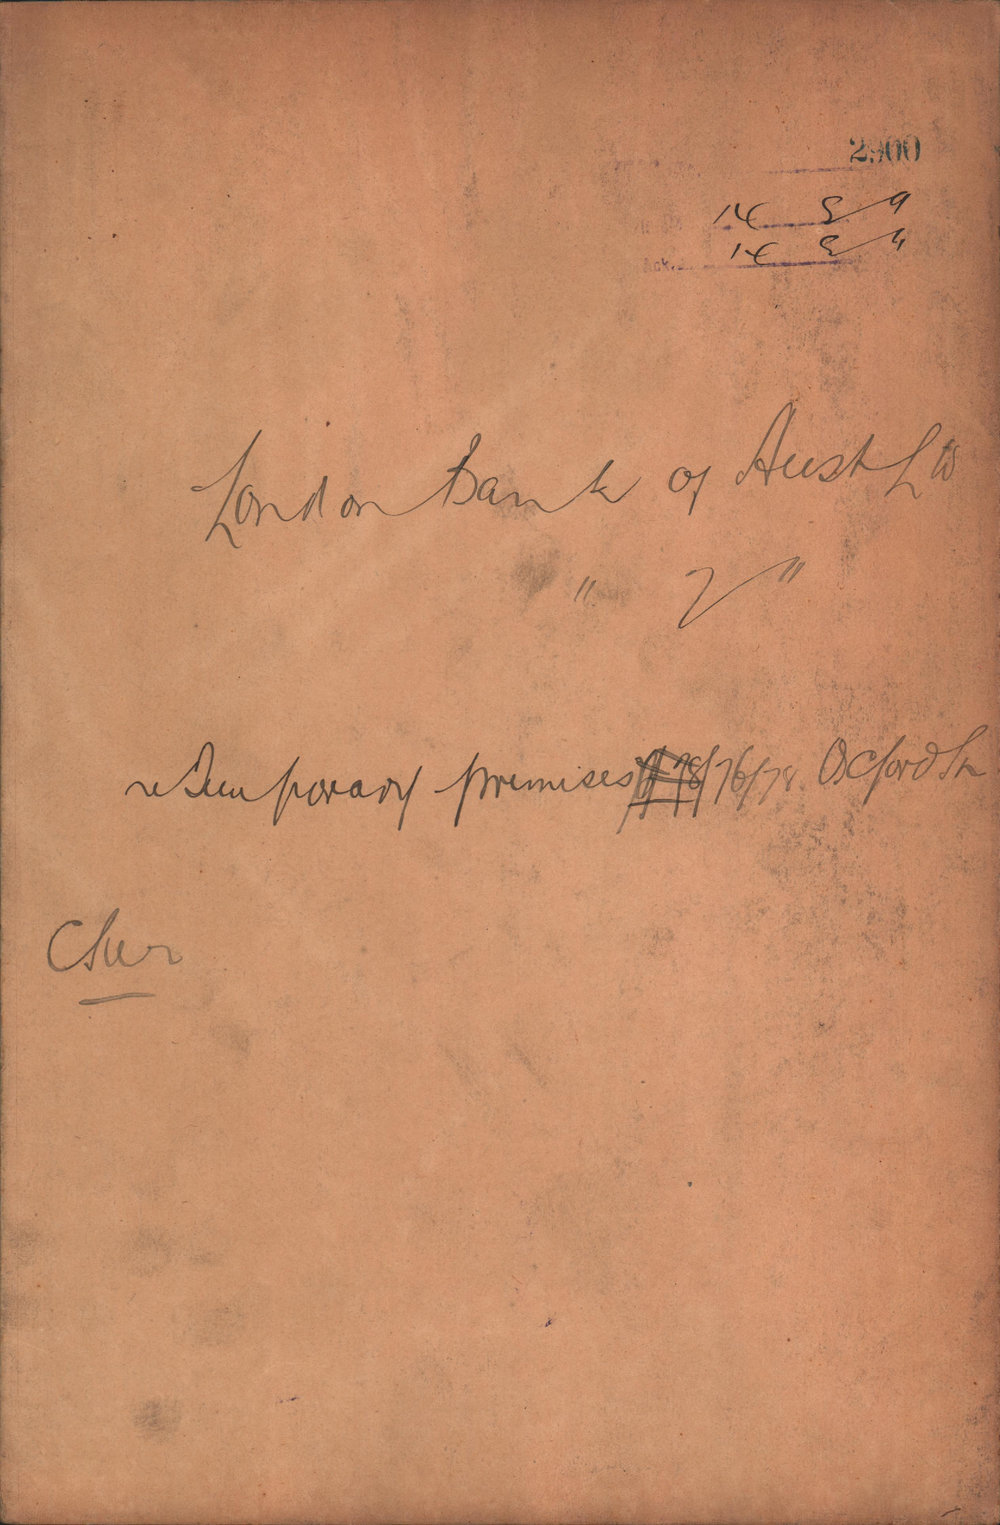 2900
14 8 9
14 8 9
London Bank of Aust Ltd
" "
re Temporary premises 76/78 Oxford St